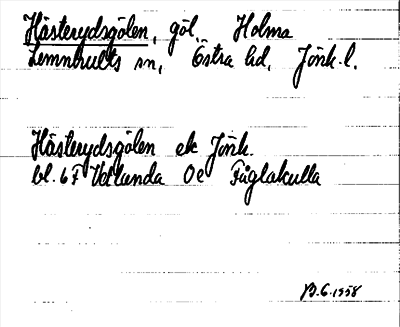 Hästerydsgölen, göl, Holma
Lemnhults sn, Östra hd, Jönk. l.
Hästerydsgölen ek Jönk.
bl. 6 F Vetlanda Oe Fåglakulla
B.G. 1958